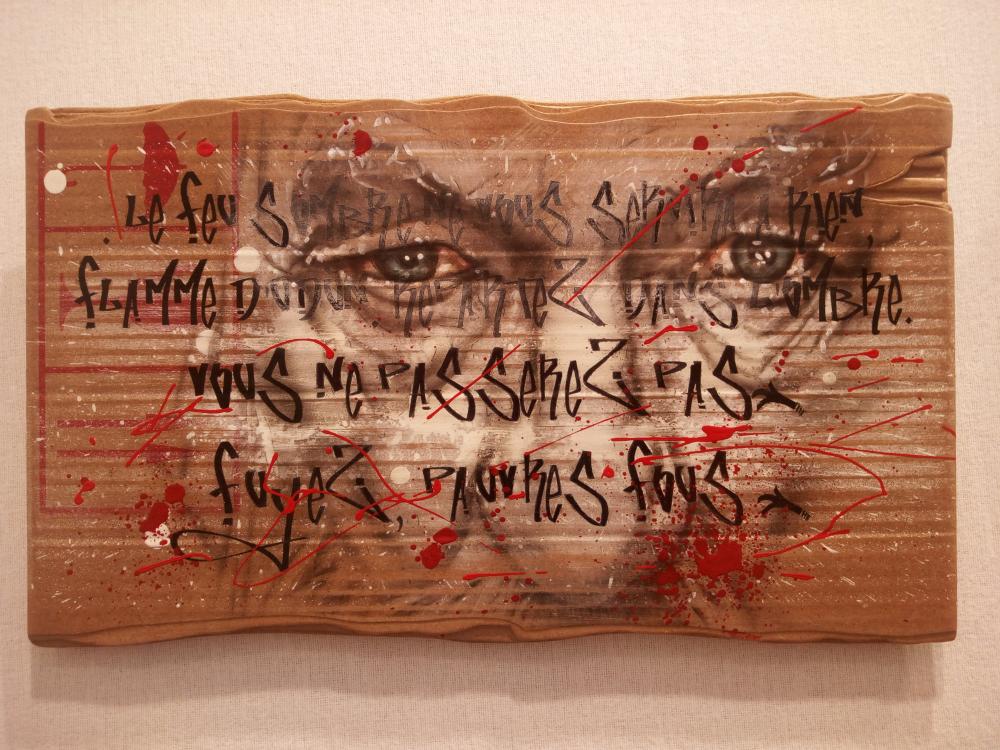 . Le feu sombre ne vous servira à rien,
flamme d'Udun. Repartez dans l'ombre.
vous ne passerez pas
fuyez, pauvres fous